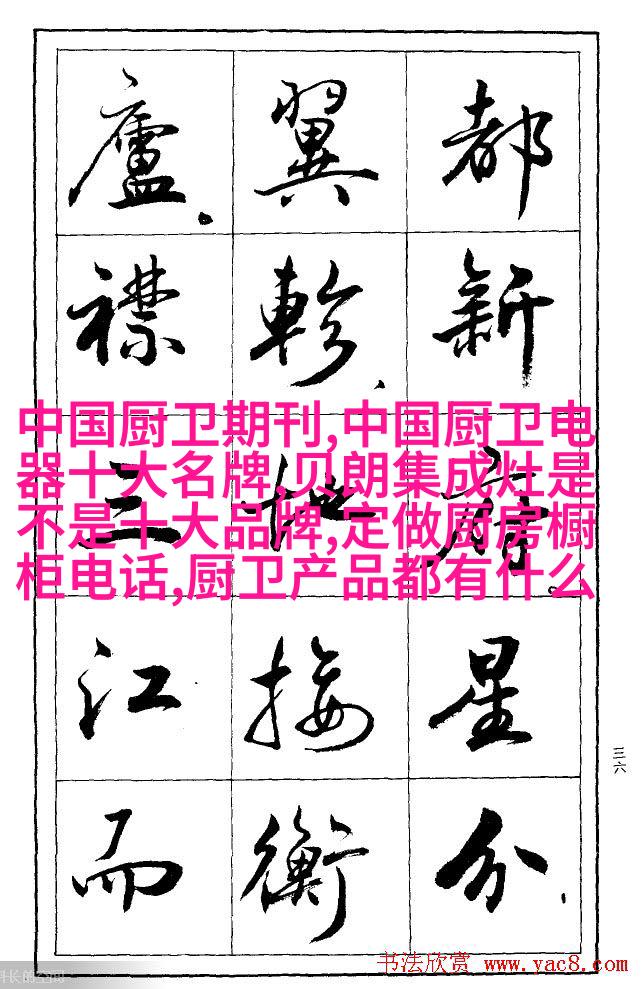 都新府。星分、
翼軫、地接衡
廬。襟三江而
中国厨卫期刊,中国厨卫电
器十大名牌,贝朗集成灶是
不是十大品牌,定做厨房橱
柜电话,厨卫产品都有什么
三六
书法欣赏 www.yac8.com
长的空间